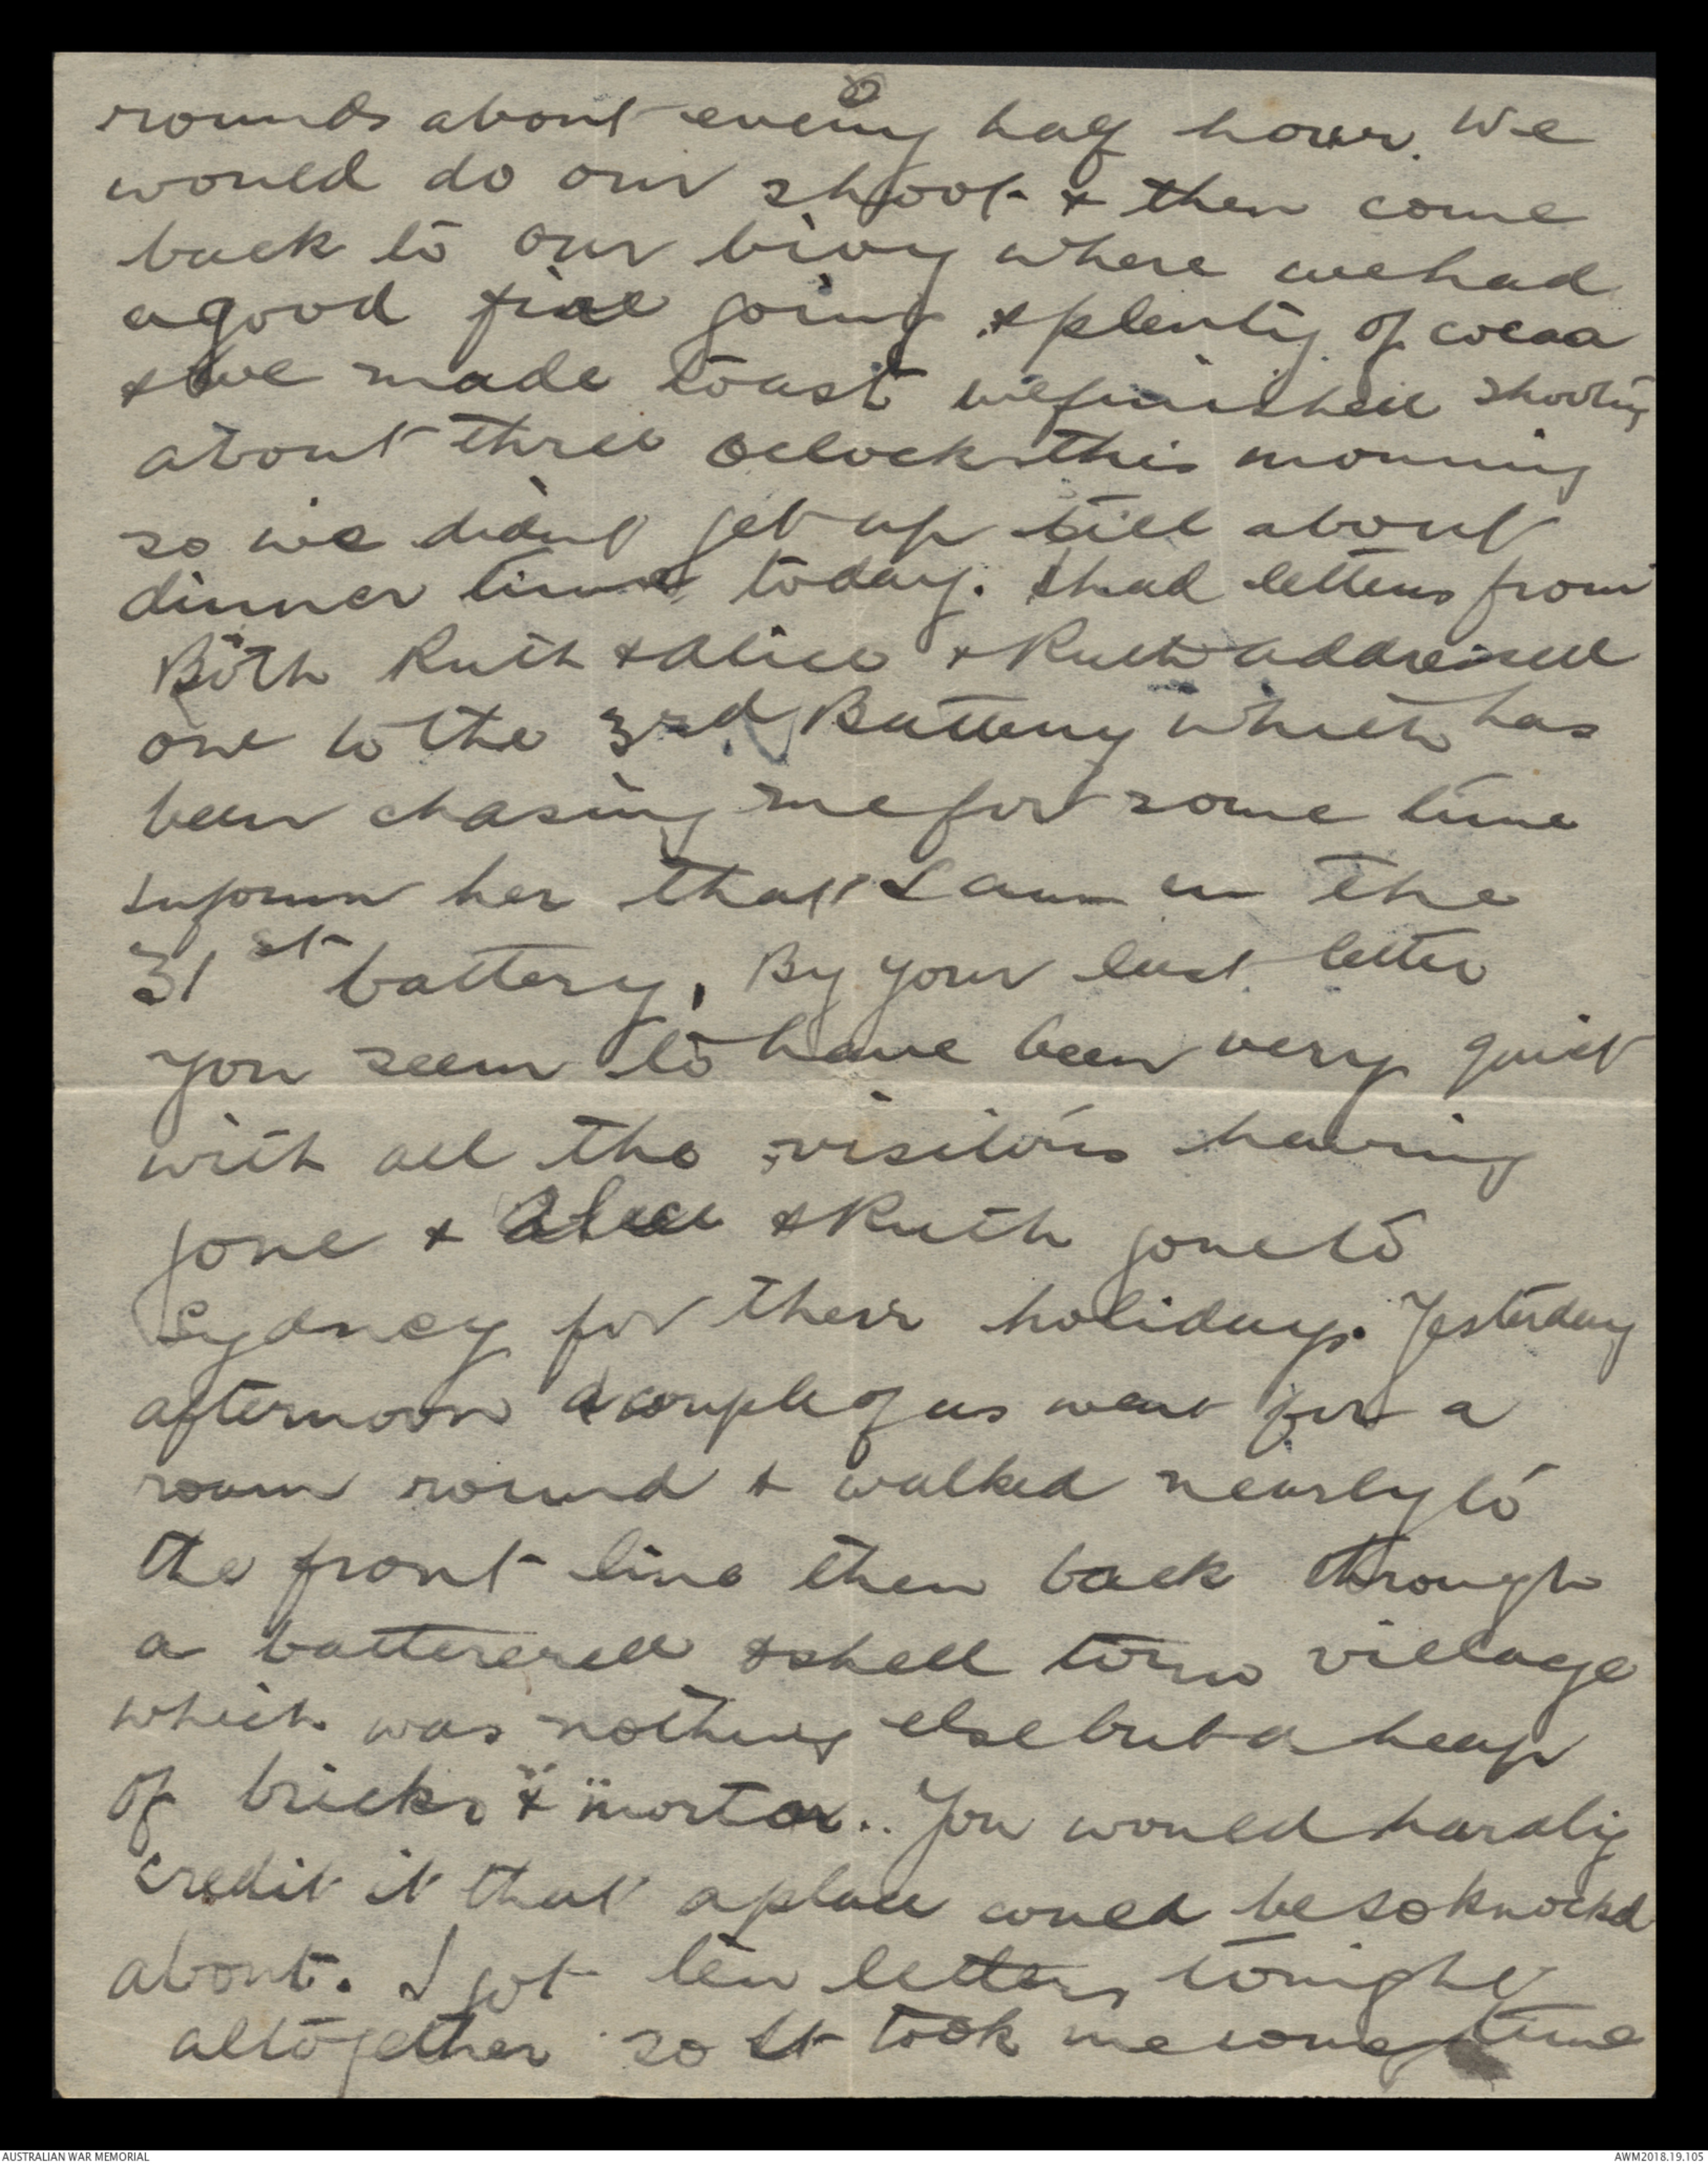 rounds about every half hour. We
would do our shoot & then come
back to our bivy where we had
a good fire going & plenty of cocoa
& we made toast we finished shooting
about three oclock this morning
so we didnt get up till about
dinner time today. I had letters from
Both Ruth & Alice & Ruth addressed
one to the 3rd Battery which has
been chasing me for some time
Inform her that I am in the
31st battery, By your last letter
you seem to have been very quiet
with all the visitors having
gone & Alice & Ruth gone to
Sydney for their holidays. Yesterday
afternoon a couple of us went for a
roam round & walked nearly to
the front line then back through
a battererd & shell torn village
which was nothing else but a heap
of bricks & mortar.. You would hardly
credit it that a place could be so knocked
about. I got ten letters tonight
altogether so it took me some time
AUSTRALIAN WAR MEMORIAL
AWM2018.19.105